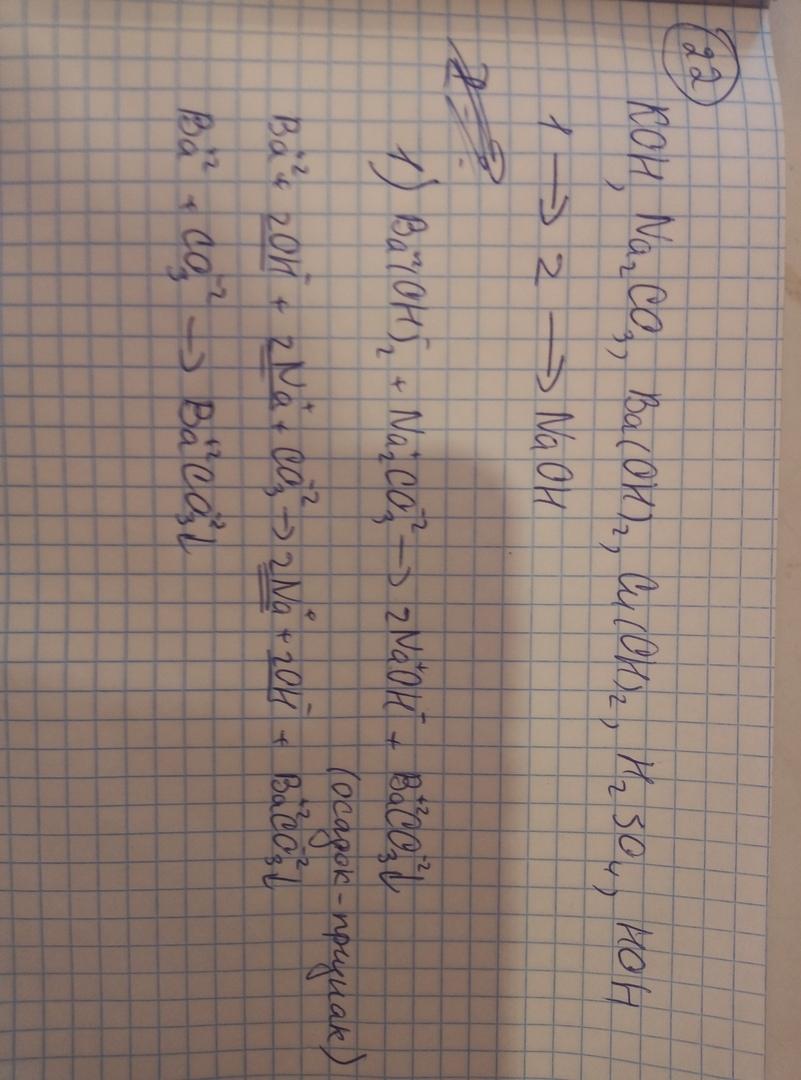 22
KOH, Na₂CO₃, Ba(OH)₂, Cu(OH)₂, H₂SO₄, HOH
1 → 2 → NaOH
1) Ba⁺²(OH)⁻₂ + Na⁺₂CO₃⁻² → 2Na⁺OH⁻ + Ba⁺²CO₃⁻²↓
(осадок - признак)
Ba⁺² + 2OH⁻ + 2Na⁺ + CO₃⁻² → 2Na⁺ + 2OH⁻ + Ba⁺²CO₃⁻²↓
Ba⁺² + CO₃⁻² → Ba⁺²CO₃⁻²↓